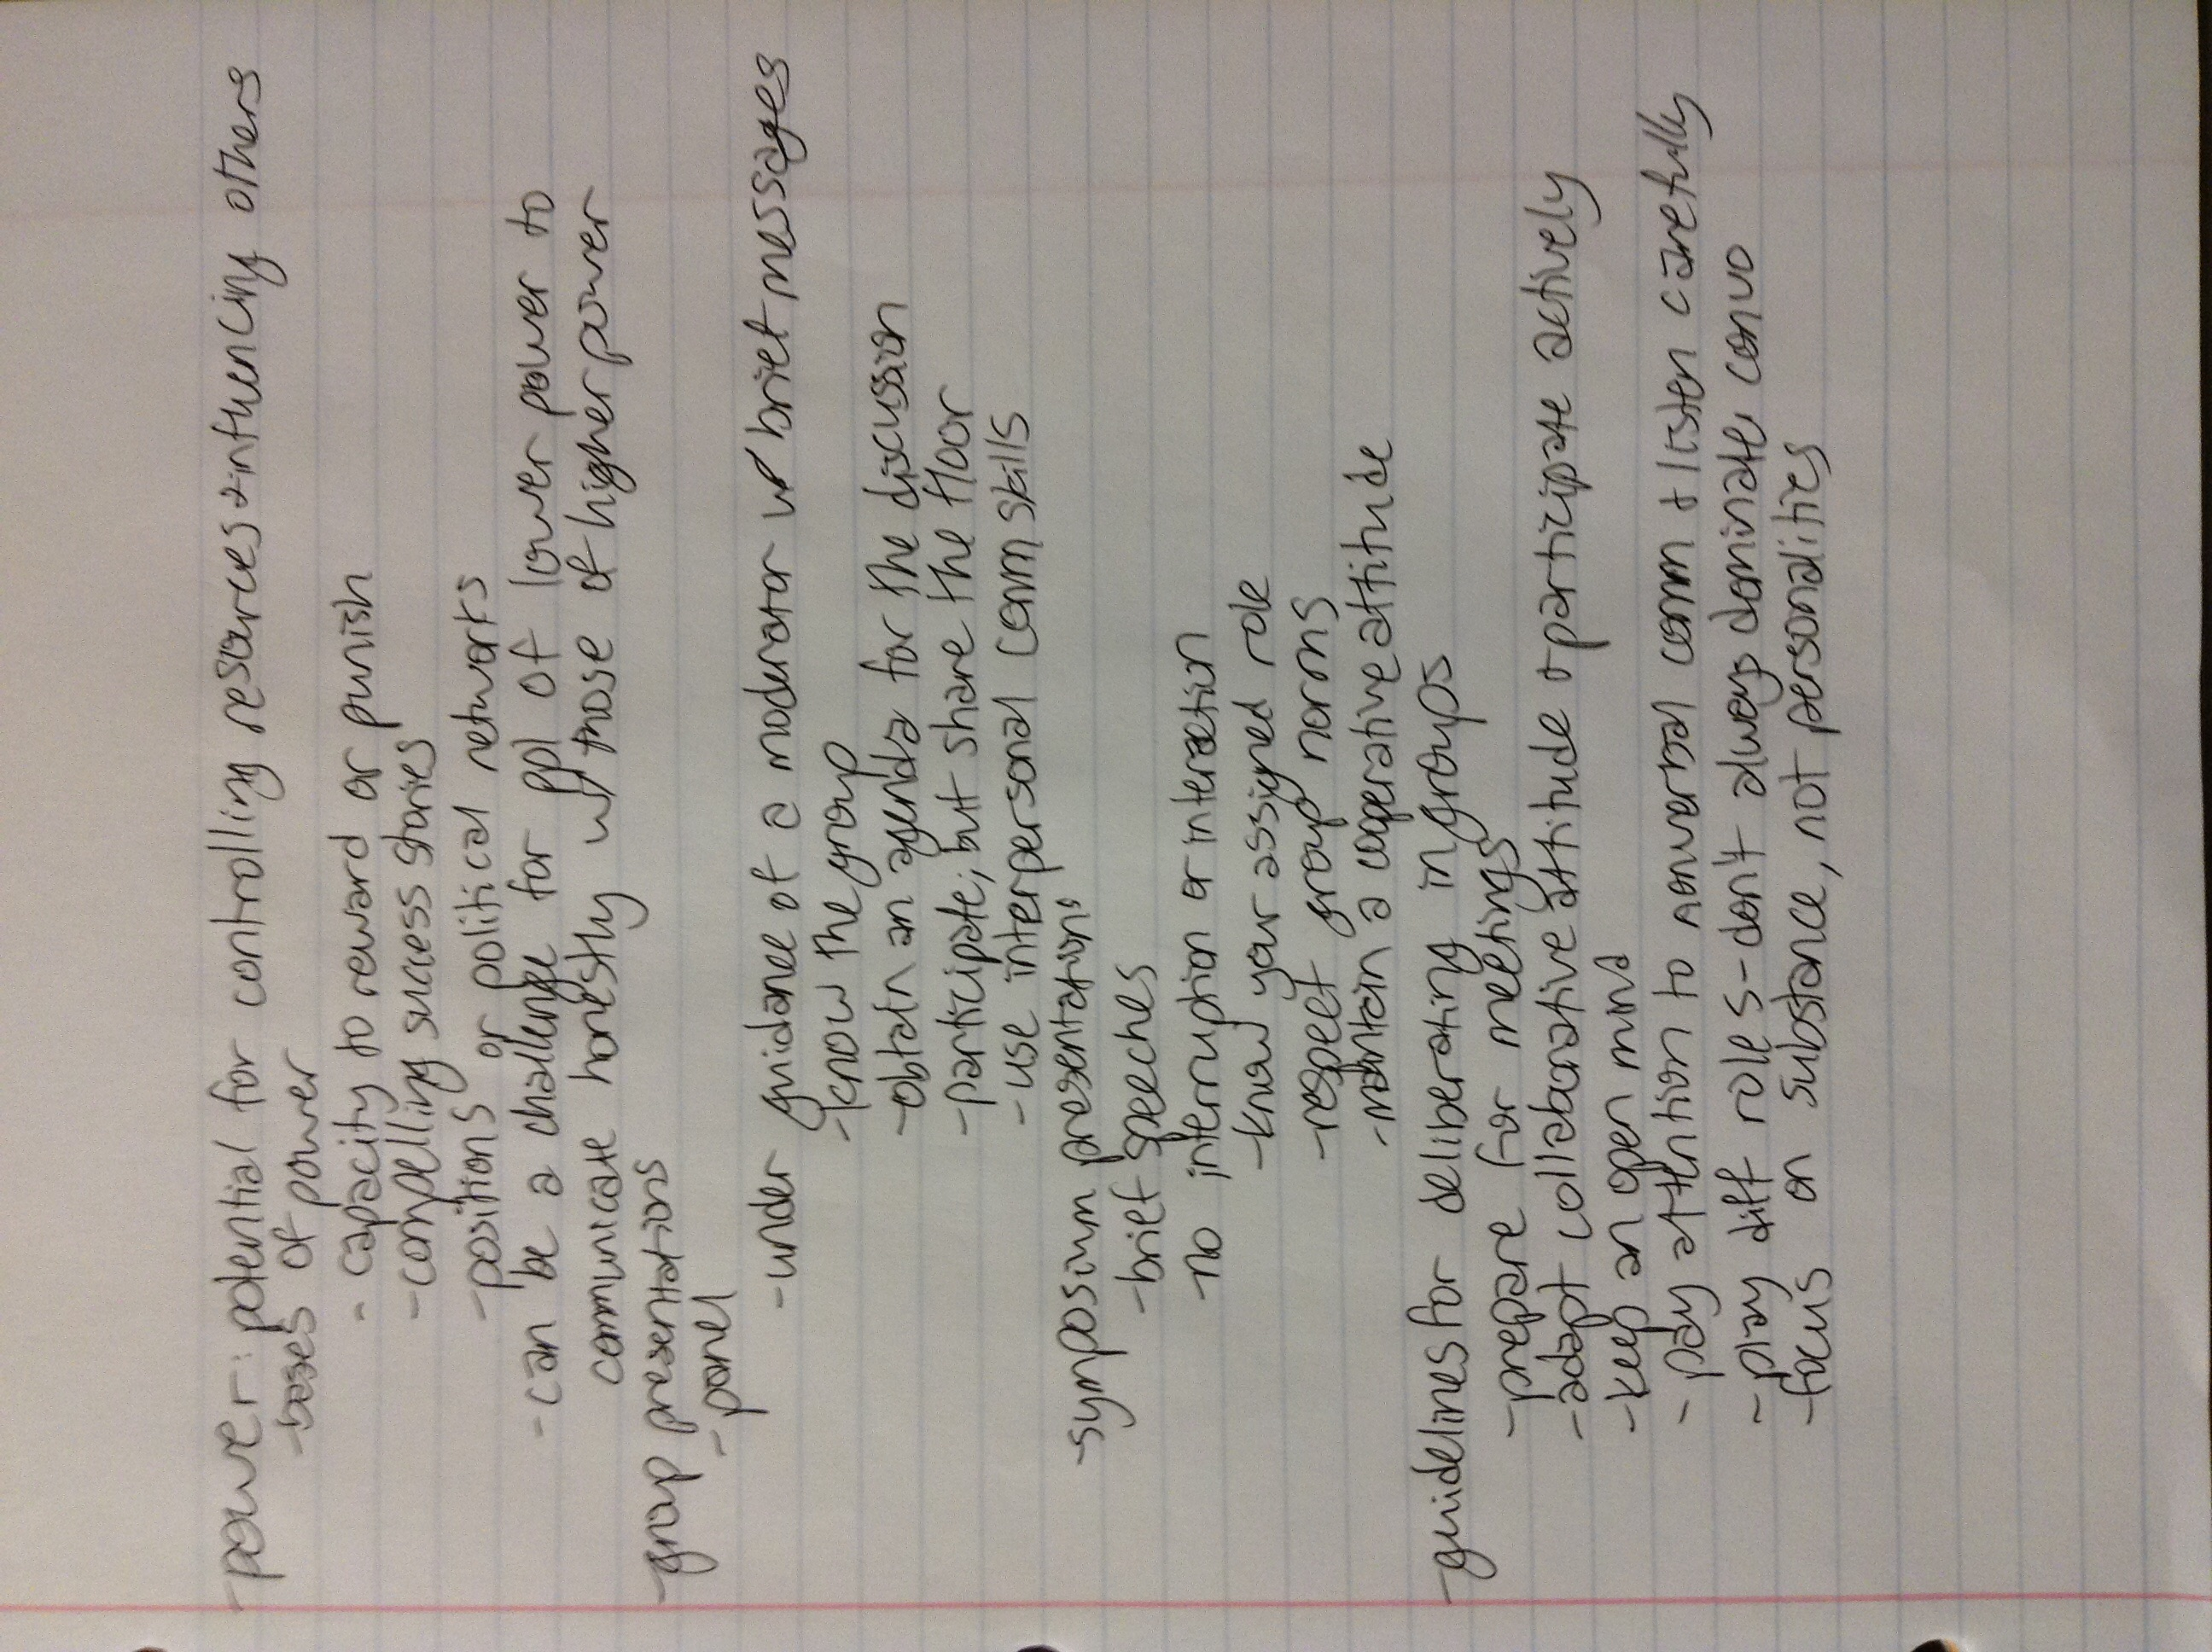 -power: potential for controlling resources + influencing others
-bases of power
- capacity to reward or punish
-compelling success stories
-positions or political networks
-can be a challenge for ppl of lower power to
communicate honestly w/ those of higher power
-group presentations
-panel
-under guidance of a moderator w/ brief messages
-know the group
-obtain an agenda for the discussion
-participate, but share the floor
-use interpersonal comm skills
-symposium presentations
-brief speeches
-no interruption or interaction
-know your assigned role
-respect group norms
-maintain a cooperative attitude
-guidelines for deliberating in groups
-prepare for meetings
-adapt collaborative attitude + participate actively
-keep an open mind
- pay attention to nonverbal comm + listen carefully
- play diff roles-don't always dominate convo
-focus on substance, not personalities